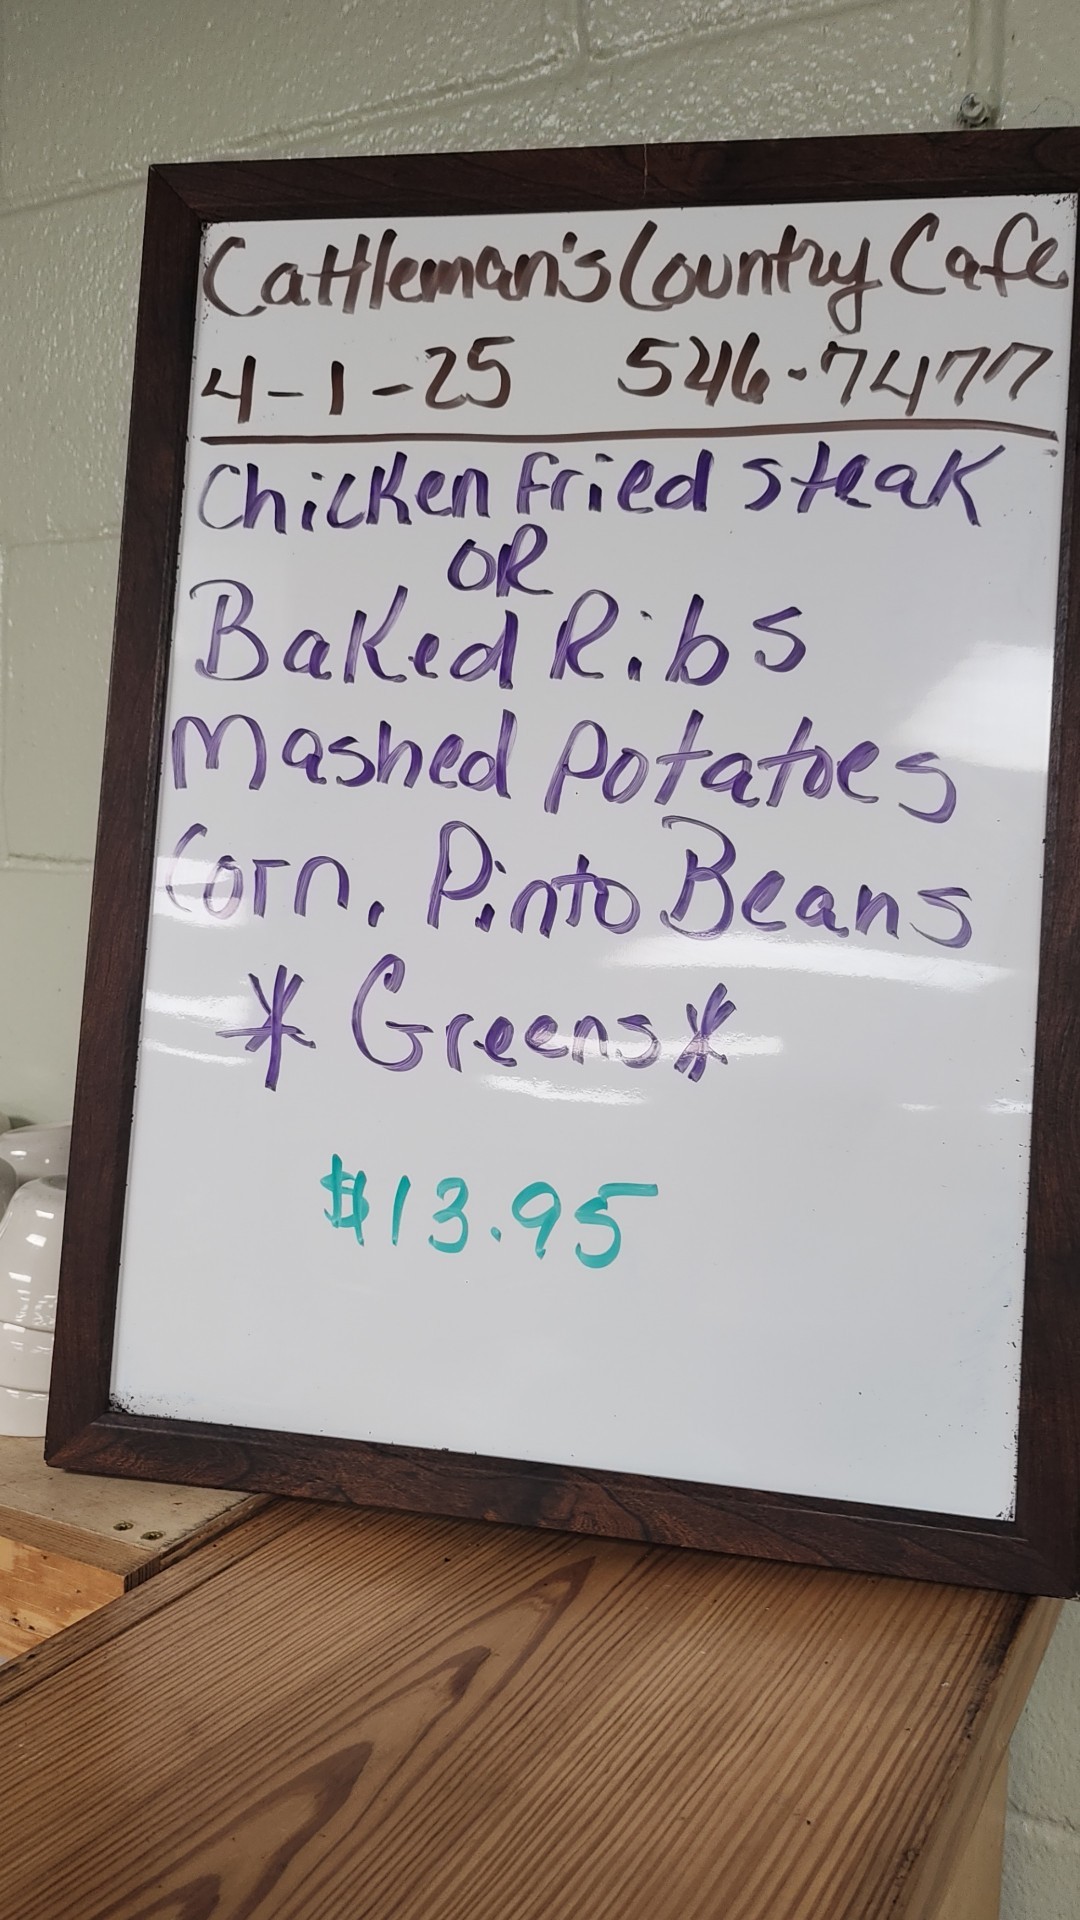 Cattleman's Country Cafe
4-1-25 546-7477
Chicken Fried Steak
OR
Baked Ribs
Mashed Potatoes
Corn, Pinto Beans
* Greens *
$13.95